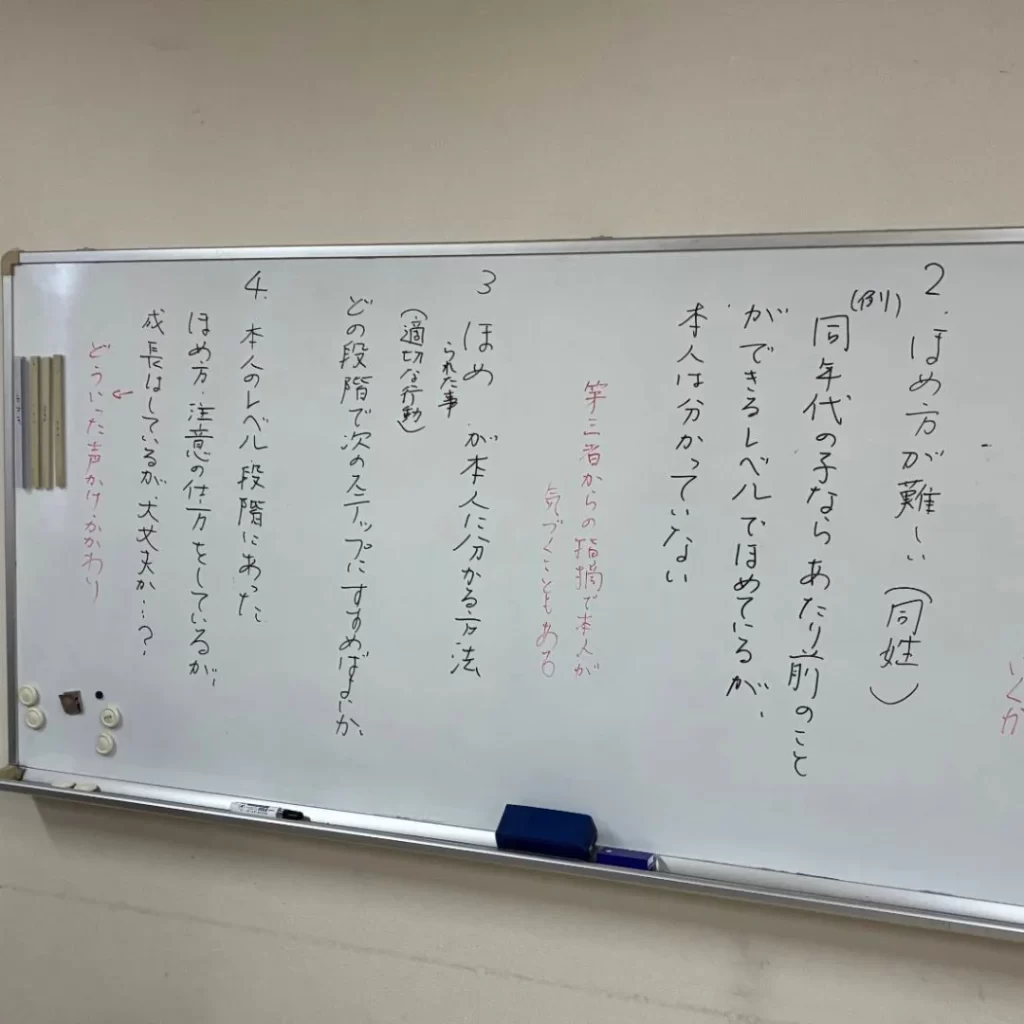 いくか
2. ほめ方が難しい(同姓)
(例)
同年代の子なら あたり前のこと
ができるレベルでほめているが、
本人は分かっていない
第三者からの指摘で本人が
気づくこともある
3 ほめられた事が本人に分かる方法
(適切な行動)
どの段階で次のステップにすすめばよいか、
4. 本人のレベル 段階にあった
ほめ方・注意の仕方をしているが、
成長はしているが、大丈夫か…?
どういった声かけ・かかわり